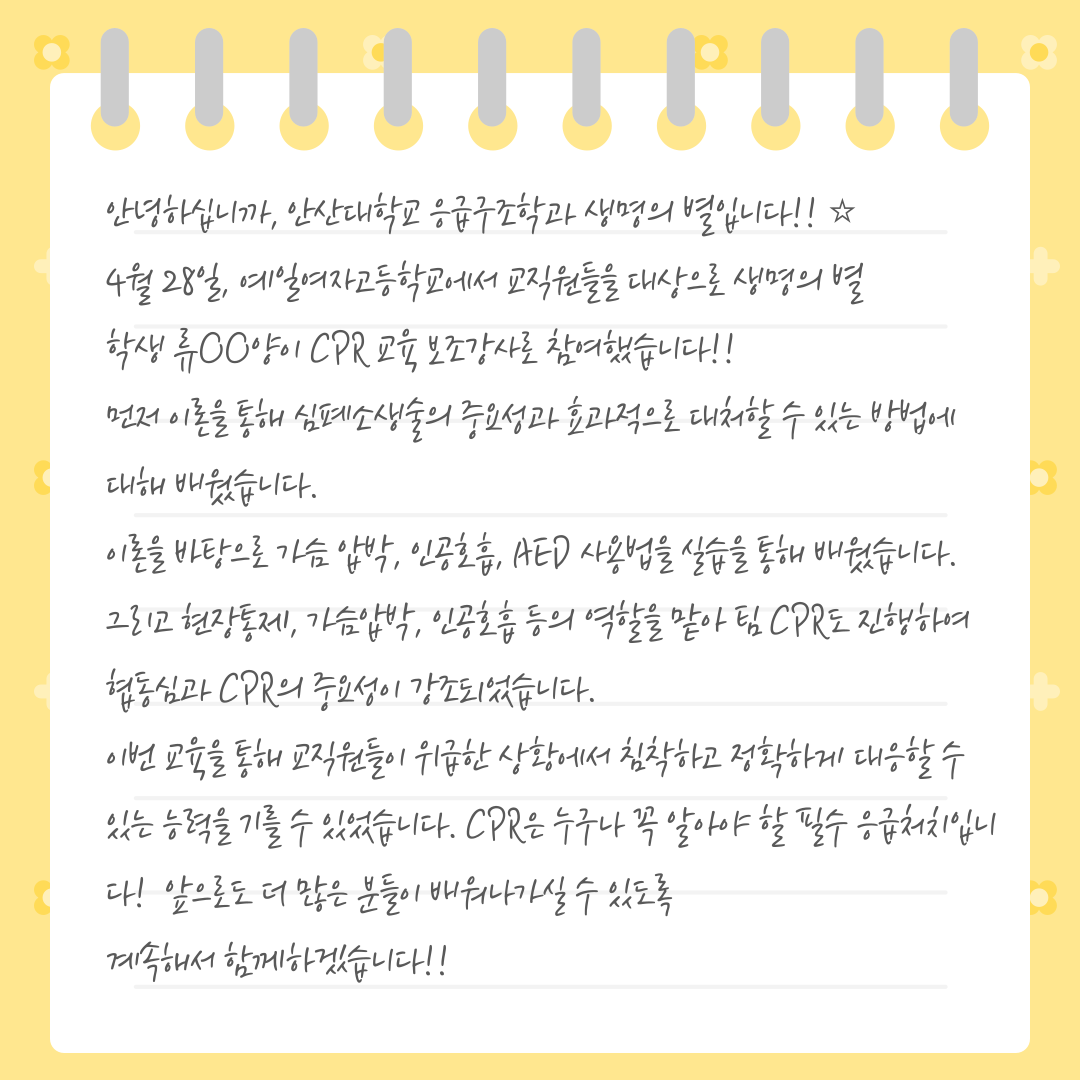 안녕하십니까, 안산대학교 응급구조학과 생명의 별입니다!! ☆
4월 28일, 예일여자고등학교에서 교직원들을 대상으로 생명의 별
학생 류OO양이 CPR 교육 보조강사로 참여했습니다!!
먼저 이론을 통해 심폐소생술의 중요성과 효과적으로 대처할 수 있는 방법에
대해 배웠습니다.
이론을 바탕으로 가슴 압박, 인공호흡, AED 사용법을 실습을 통해 배웠습니다.
그리고 현장통제, 가슴압박, 인공호흡 등의 역할을 맡아 팀 CPR도 진행하여
협동심과 CPR의 중요성이 강조되었습니다.
이번 교육을 통해 교직원들이 위급한 상황에서 침착하고 정확하게 대응할 수
있는 능력을 기를 수 있었습니다. CPR은 누구나 꼭 알아야 할 필수 응급처치입니
다! 앞으로도 더 많은 분들이 배워나가실 수 있도록
계속해서 함께하겠습니다!!